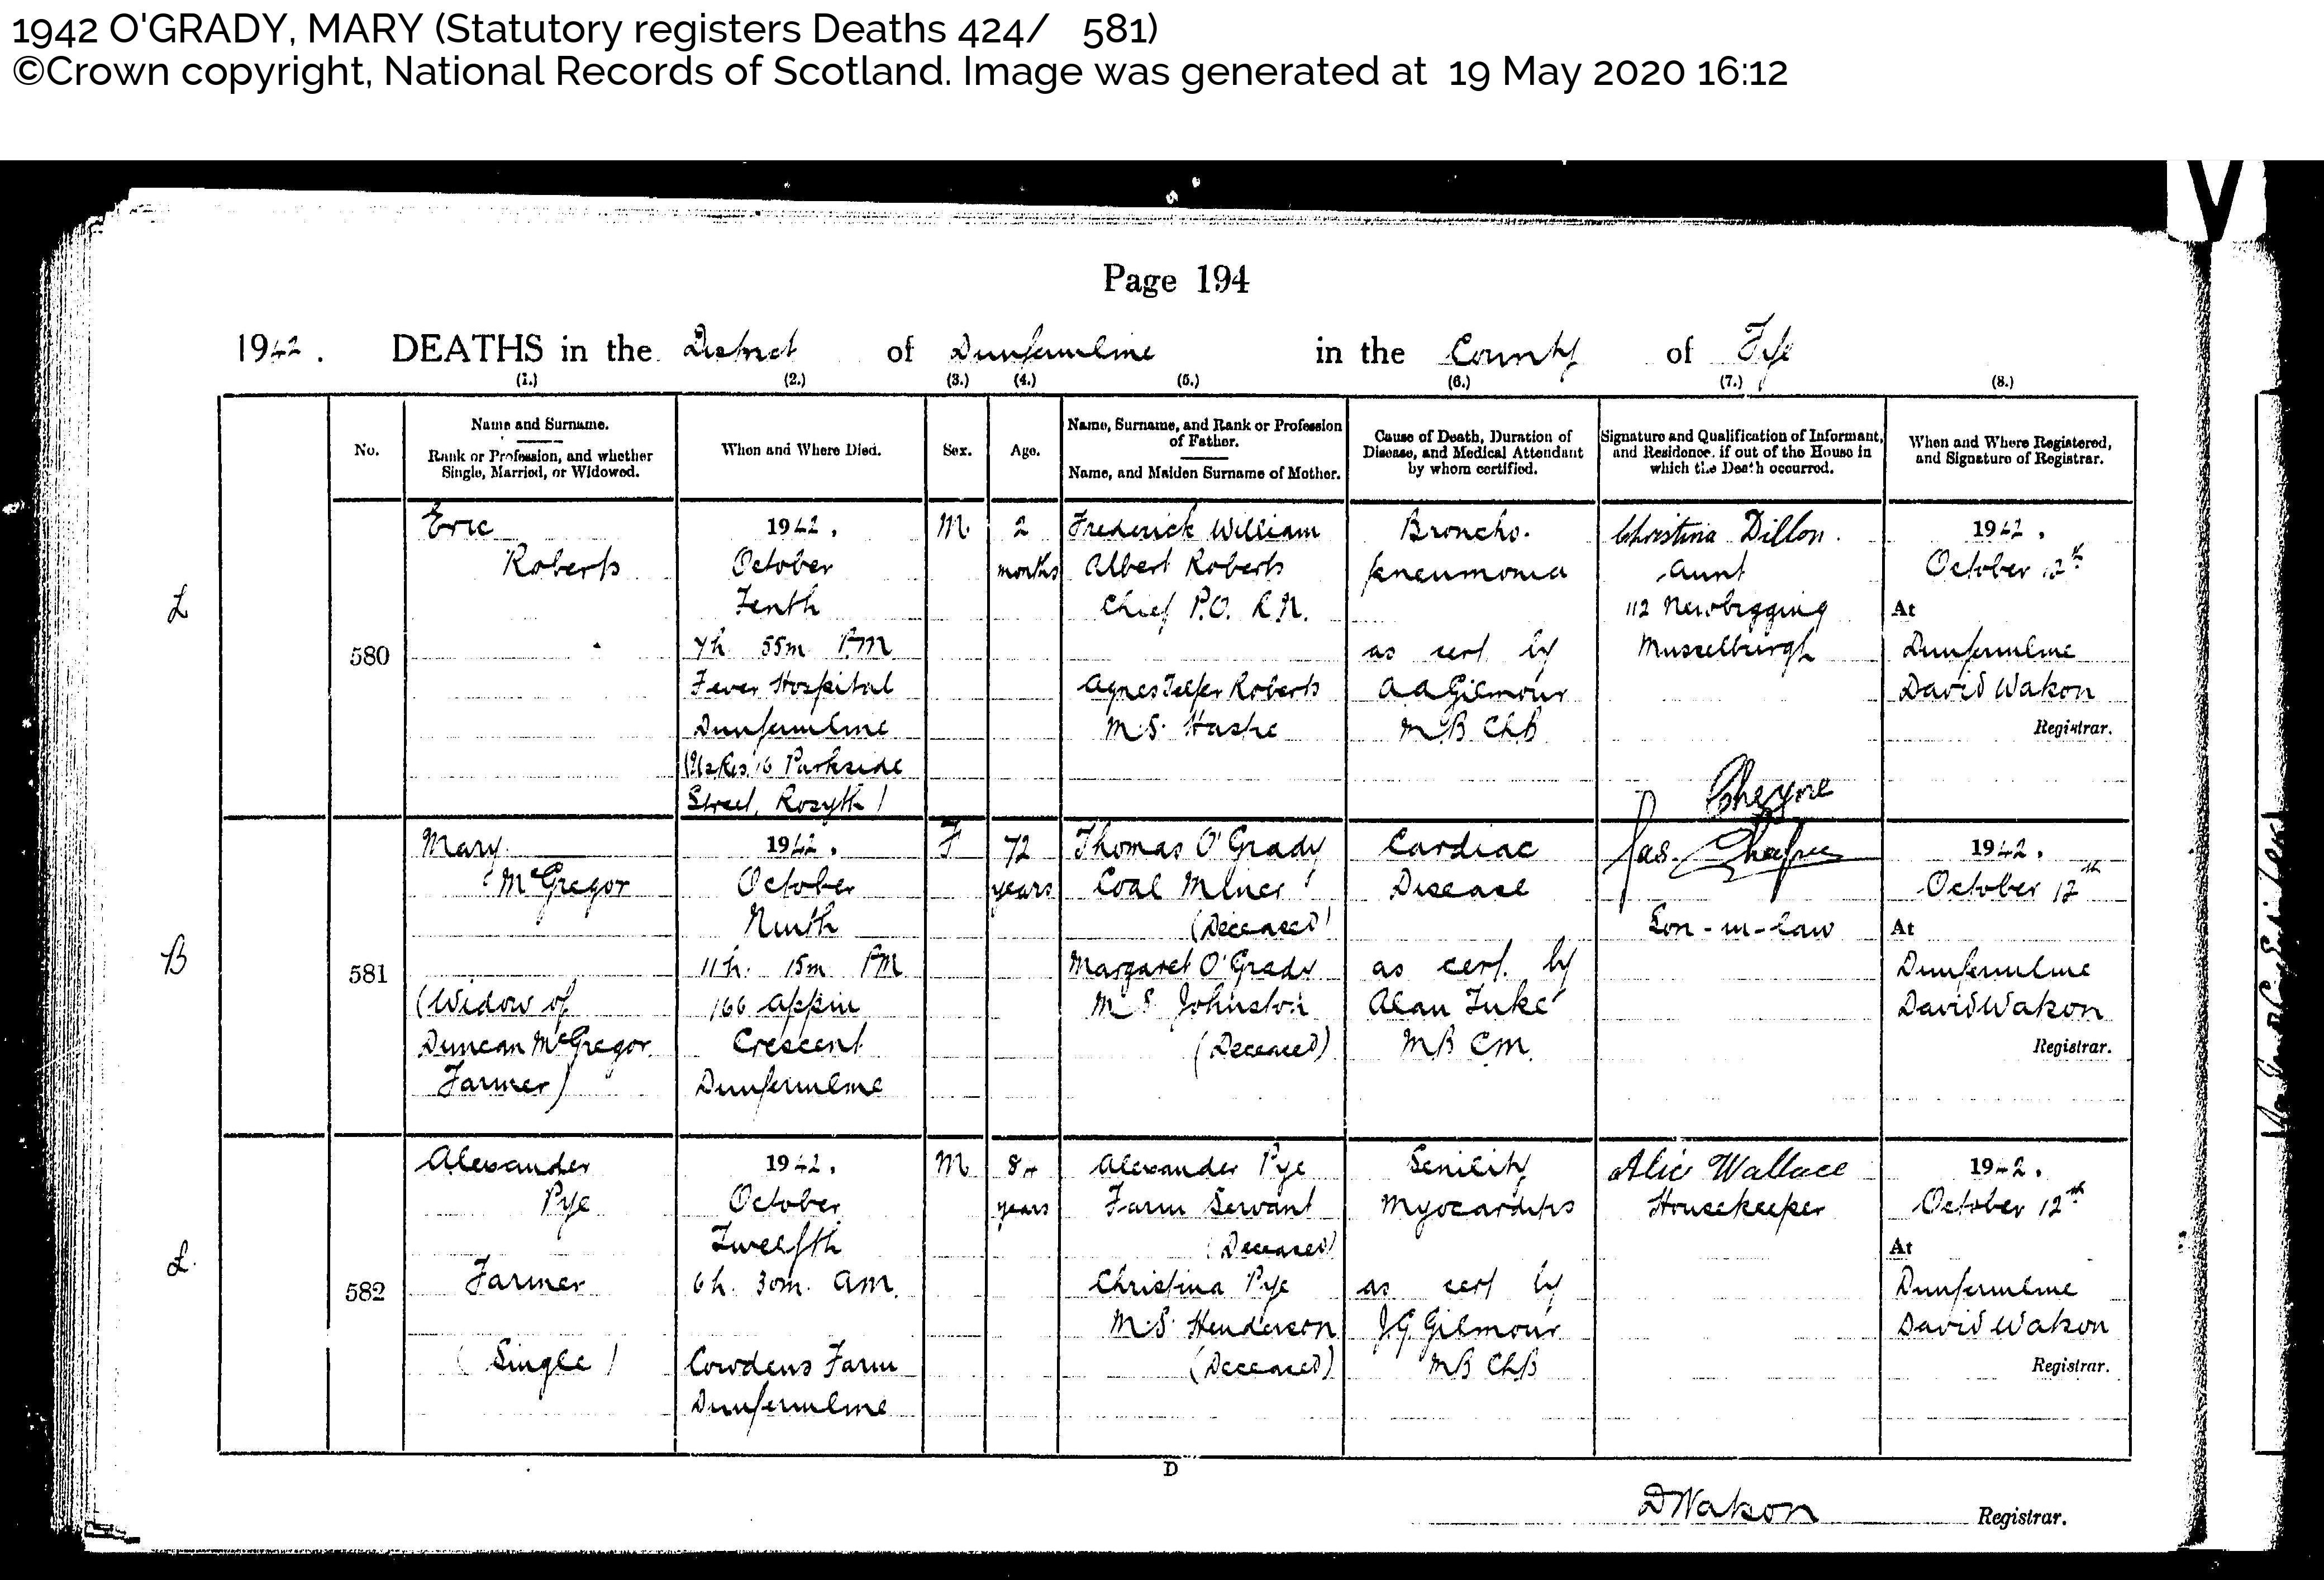 1942 O'GRADY, MARY (Statutory registers Deaths 424/ 581)
©Crown copyright, National Records of Scotland. Image was generated at 19 May 2020 16:12
Page 194
1942. DEATHS in the District of Dunfermline in the County of Fife
(1.) (2.) (3.) (4.) (5.) (6.) (7.) (8.)
No.
Name and Surname.
Rank or Profession, and whether
Single, Married, or Widowed.
When and Where Died.
Sex.
Age.
Name, Surname, and Rank or Profession
of Father.
Name, and Maiden Surname of Mother.
Cause of Death, Duration of
Disease, and Medical Attendant
by whom certified.
Signature and Qualification of Informant,
and Residence, if out of the House in
which the Death occurred.
When and Where Registered,
and Signature of Registrar.
L
580
Eric
Roberts
1942.
October
Tenth
7h. 55m PM
Fever Hospital
Dunfermline
(Us Res 16 Parkside
Street, Rosyth)
M
2
months
Frederick William
Albert Roberts
Chief P.O. R.N.
Agnes Telfer Roberts
M.S. Hastie
Broncho.
pneumonia
as cert by
A A Gilmour
MB ChB
Christina Dillon.
Aunt
112 Newbigging
Musselburgh
1942.
October 12th
At
Dunfermline
David Watson
Registrar.
B
581
Mary
McGregor
(Widow of
Duncan McGregor
Farmer)
1942.
October
Ninth
11h. 15m PM
166 Appin
Crescent
Dunfermline
F
72
years
Thomas O'Grady
Coal Miner
(Deceased)
Margaret O'Grady
M S Johnston
(Deceased)
Cardiac
Disease
as cert. by
Alan Tuke
MB CM.
Cheyne
Jas.
Son-in-law
1942.
October 12th
At
Dunfermline
David Watson
Registrar.
L.
582
Alexander
Pye
Farmer
(Single)
1942.
October
Twelfth
6h. 30m. AM.
Cowdens Farm
Dunfermline
M
84
years
Alexander Pye
Farm Servant
(Deceased)
Christina Pye
M.S. Henderson
(Deceased)
Senility
Myocarditis
as cert by
J.G. Gilmour
MB ChB
Alic Wallace
Housekeeper
1942.
October 12th
At
Dunfermline
David Watson
Registrar.
D
D Watson Registrar.